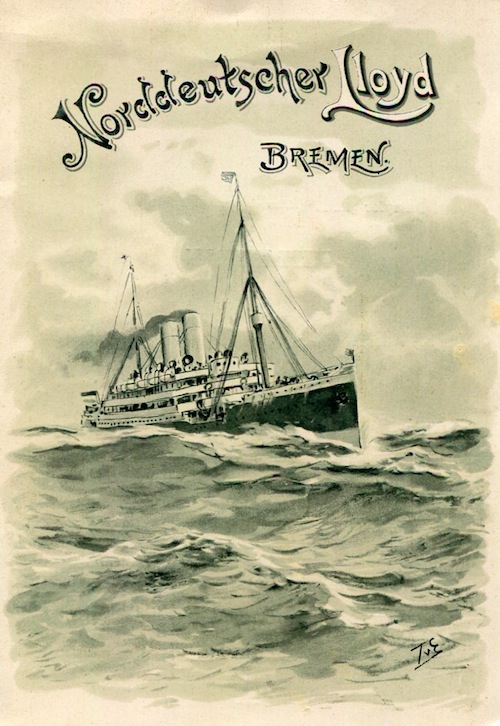 Norddeutscher Lloyd
BREMEN.
TvE